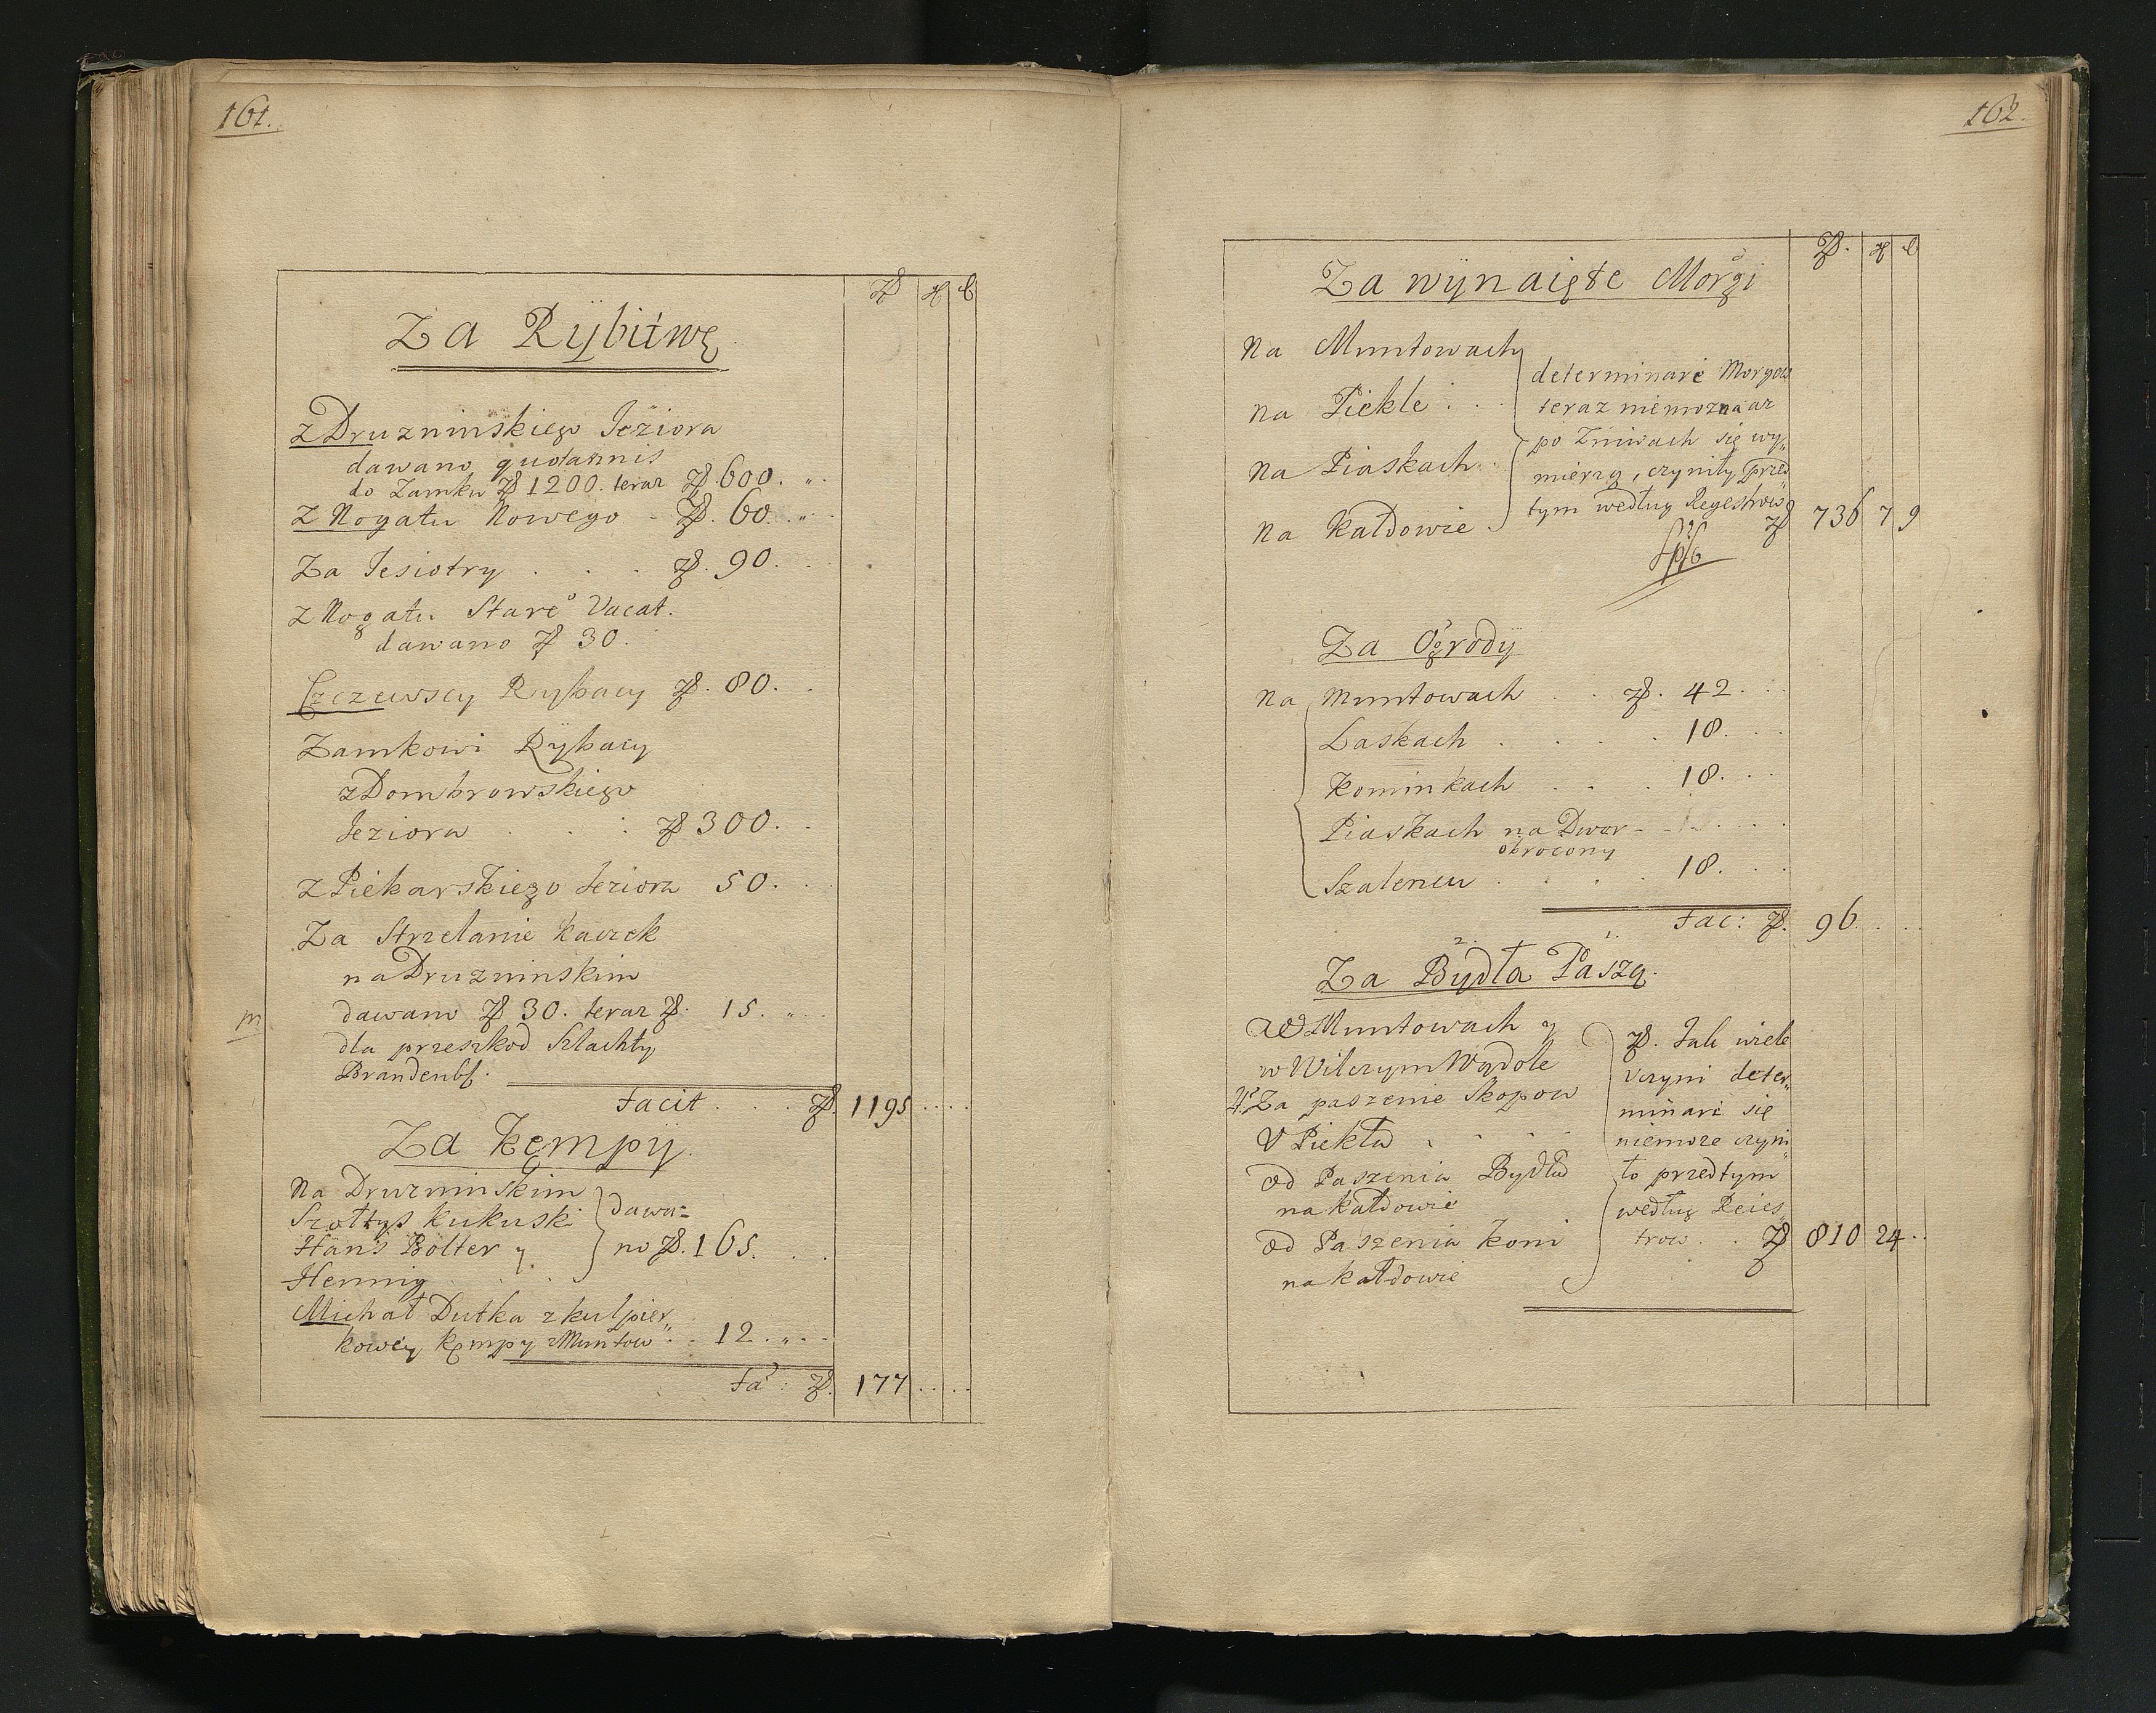 161.
zł gr d
Za Rÿbitwę
z Druzninskiego Jeziora
dawano quotannis
do Zamku zł 1200. teraz zł 600. „
z Nogatu Nowego - zł. 60. „
Za Jesiotry . . . zł. 90.
z Nogatu Stare° Vacat.
dawano zł 30.
Czczewscy Rybacy zł. 80.
Zamkowi Rÿbacy
z Dombrowskiego
Jeziora . . . zł 300.
z Piekarskiego Jeziora 50.
Za Strzelanie kaczek
na Druzninskim
dawano zł 30. teraz zł. 15. „
dla przeszkod Szlachty
Brandenb.
Facit . . . zł. 1195
Za Kempÿ.
Na Druzninskim
Szołtys Kukuski
Hans Bolter y
Hennig
dawa=
no zł. 165.
Michał Dutka z kulpier„
kowey kempy z Muntow . . 12. „
Fa : zł. 177
162.
zł. gr d
Za wÿnaięte Morgi
Na Muntowach
Na Piekle . .
Na Piaskach .
Na Kałdowie
determinare Morgow
teraz niemozna az
po Zniwach się wy„
mierzą, czyniły przed
tym według Regestrow
zł 736 7 9
Za Ogrodÿ
Na Muntowach . . zł. 42
Laskach . . . . 18.
Kominkach . . . 18.
Piaskach na Dwor
obrocony
Szalencu . . . . 18.
Fac: zł. 96.
2. 1.
Za Bÿdła Paszą.
Muntowach y
w Wilczym Wądole
Za paszenie Skopow
V Piekła
od Paszenia Bydła
na kałdowie
od Paszenia Koni
na kałdowie
zł. Jak wiele
Vczyni deter„
minare się
niemoze czyni„
to przedtym
według Reies„
trow . . zł 810 24